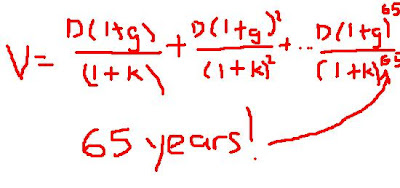 V = D(1+g)/(1+k) + D(1+g)²/(1+k)² + ... D(1+g)⁶⁵/(1+k)⁶⁵
65 years!